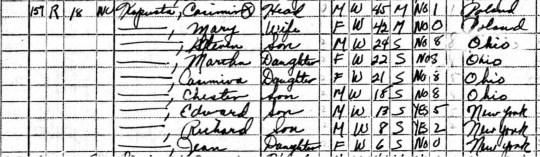 157 R 18 No Kapusta, Casimir Head M W 45 M No 1 Poland
——, Mary Wife F W 42 M No 0 Poland
——, Steven Son M W 24 S No 8 Ohio
——, Martha Daughter F W 22 S No 8 Ohio
——, Casimiva Daughter F W 21 S No 8 Ohio
——, Chester Son M W 18 S No 8 Ohio
——, Edward Son M W 13 S Yes 5 New York
——, Richard Son M W 8 S Yes 2 New York
——, Jean Daughter F W 6 S No 0 New York